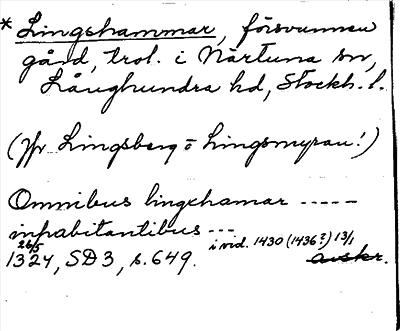 * Lingshammar, försvunnen
gård, trol. i Närtuna sn,
Långhundra hd, Stockh. l.
(Jfr Lingsberg o Lingsmyran!)
Omnibus lingehamar -----
inhabitantibus ---
26/5 1324, SD 3, s. 649. i vid. 1430 (1436?) 13/1
avskr.